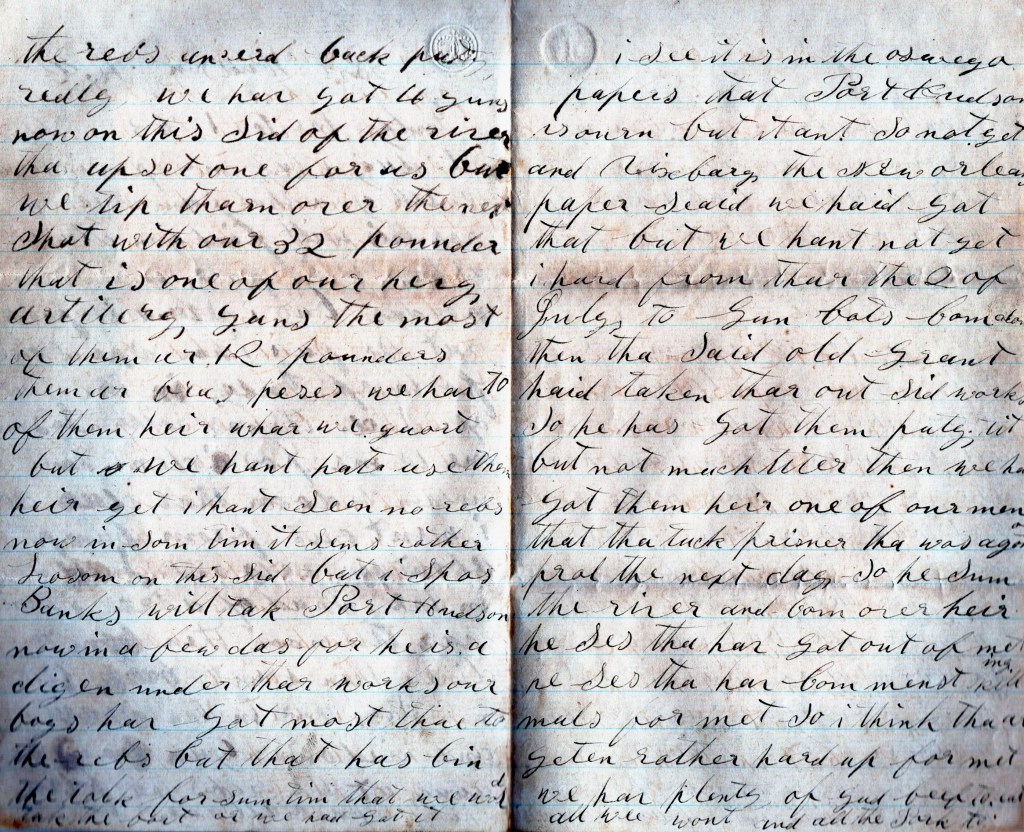 the rebs anserd back
redly we har got 16 guns
now on this sid of the river
tha upset one for us but
we tip tharn over the nex
shot with our 32 pounder
that is one of our hevy
artilery guns the most
of them ar 12 pounders
them ar bras peses we har to
of them heir whar we guort
but we hant hat use them
heir yet i hant seen no rebs
now in som tim it sems rather
on this sid but i spos
Banks will tak Port Hudson
now in a few das for he is a
digen under thar works our
boys har got most thue to
the rebs but that has bin
the talk for sum tim that we wod
tak he port or we had got it
i see it is in the oswego
papers that Port Hudson
is ourn but it ant so not yet
and Vixburg the New orleans
paper seaid we haid got
that but we hant not yet
i hard from thar the 2 of
July to gun bots bom
then tha said old Grant
haid taken thar out sid works
so he has got them paty tit
but not much titer then we ha
got them heir one of our men
that tha tuck prisner tha was agon
prol the next day so he sum
the river and com over heir
he ses tha har got out of met
he ses tha har commenst kill ing
muls for met so i think tha ar
geten rather hard up for met
we har plenty of gud beef to eat
all wee wont and all the